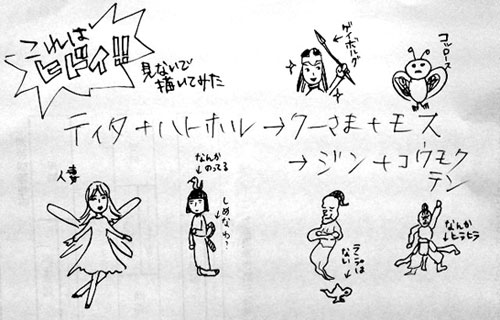 これは
ヒドイ!!
見ないで
描いてみた
ゲイボルグ
コッロース
ティタ+ハトホル→クーさま+モス
→ジン+コウモク
テン
人妻
なんか
のってる
しめなわ?
ランプは
ない
なんか
ヒラヒラ